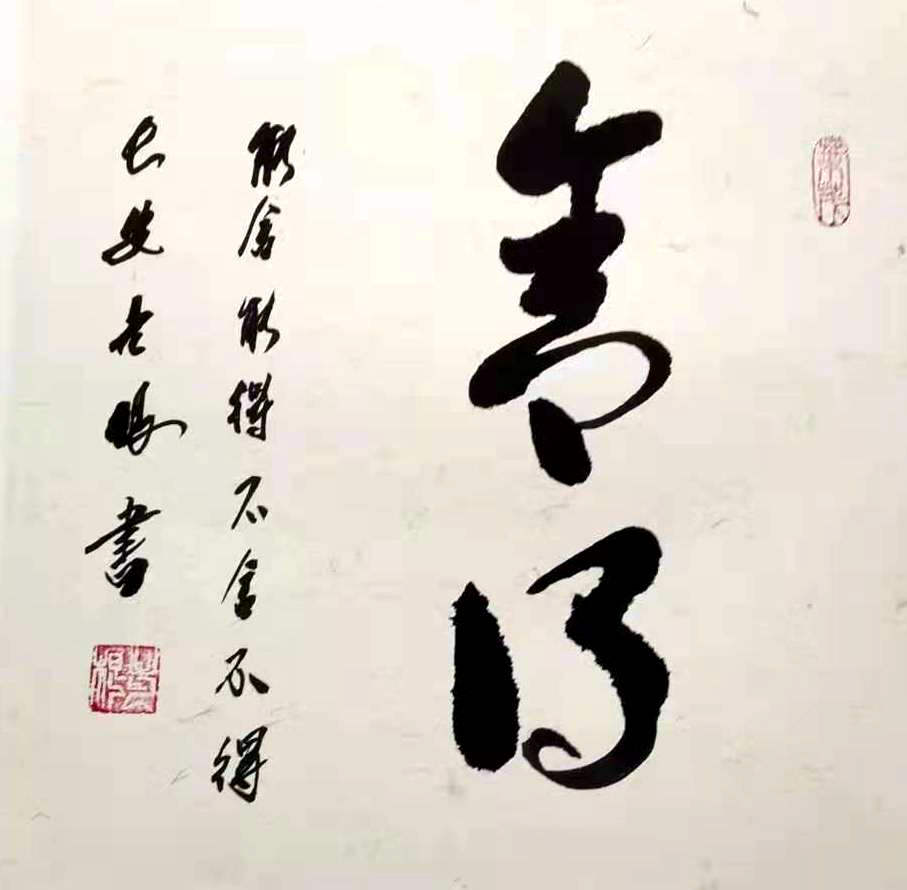 舍得
能舍能得不舍不得
长安老杨書